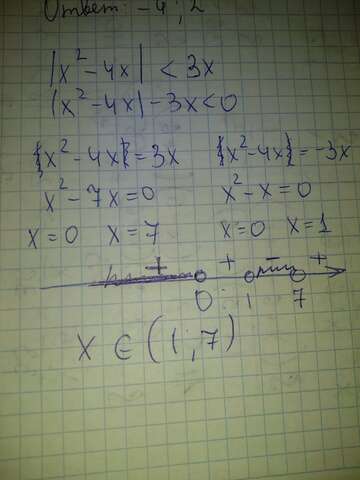 Ответ: -4; 2
|x² - 4x| < 3x
|x² - 4x| - 3x < 0
{x² - 4x} = 3x {x² - 4x} = -3x
x² - 7x = 0 x² - x = 0
x = 0 x = 7 x = 0 x = 1
+ + - +
0 1 7
x ∈ (1; 7)